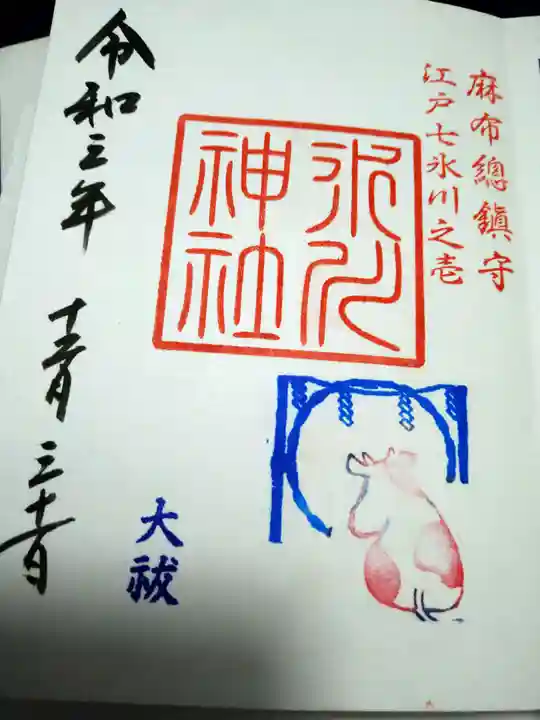 麻布總鎮守
江戸七氷川之壱
氷川
神社
大祓
令和三年 十二月 三十日